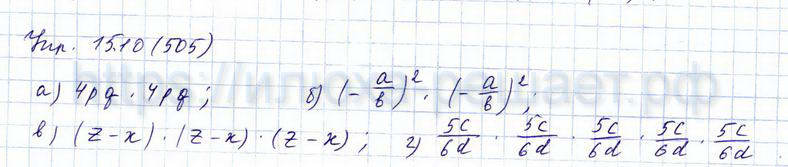 Упр. 15.10 (505)
а) 4pq · 4pq ; б) (-a/b)² · (-a/b)² ;
в) (z-x) · (z-x) · (z-x) ; г) 5c/6d · 5c/6d · 5c/6d · 5c/6d · 5c/6d
https://илюха-решает.рф